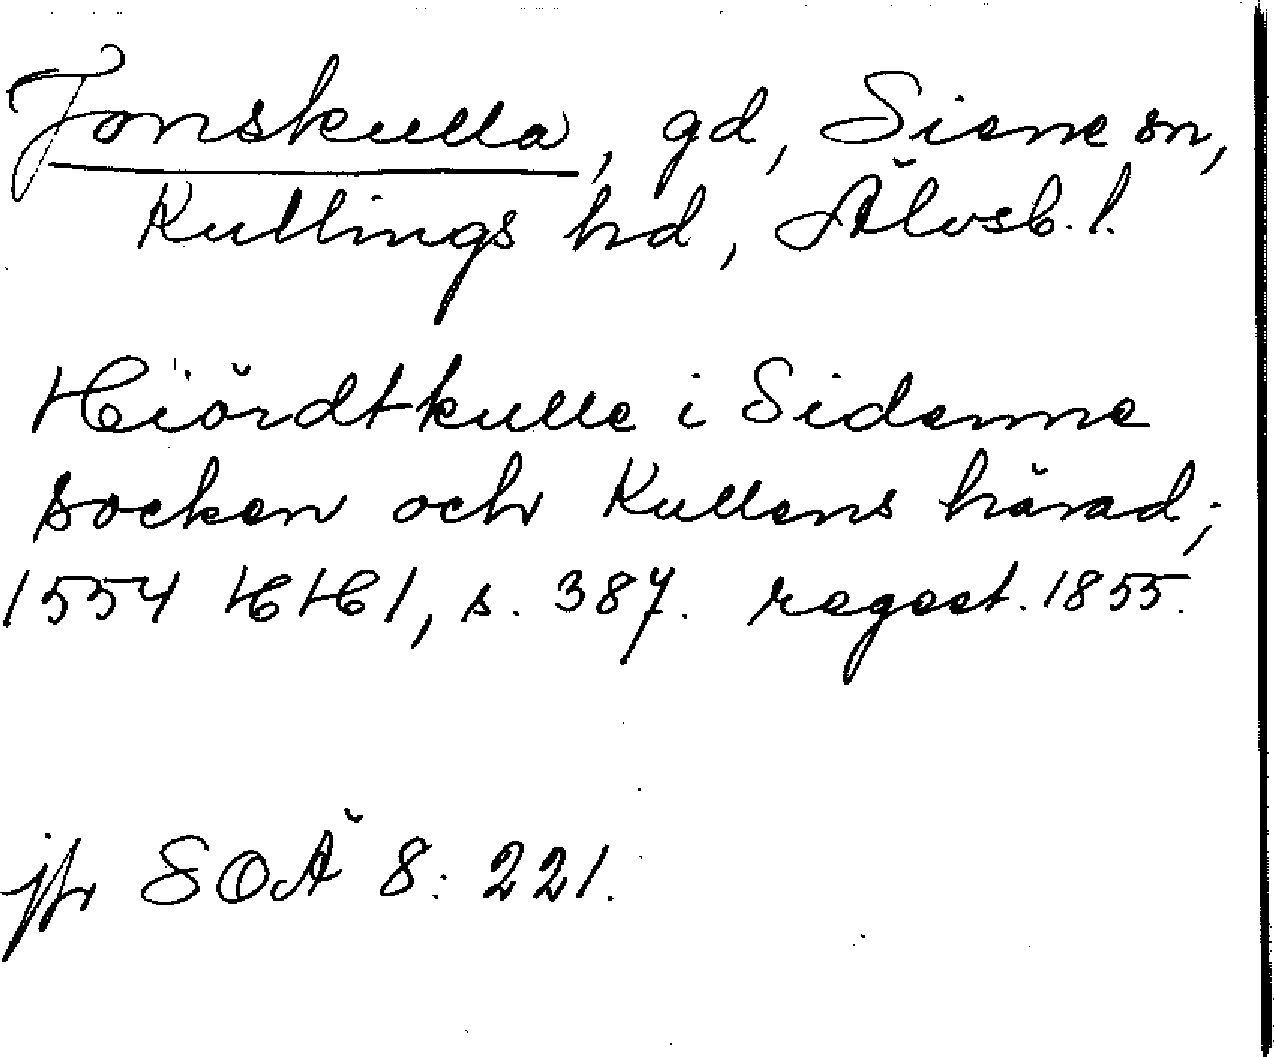 Jonskulla, gd, Siene sn,
Kullings hd, Älvsb. l.
Hiördtkulle i Sidenne
socken och Kullens härad;
1554 HH 1, s. 387. regest. 1855.
jfr SOÄ 8: 221.